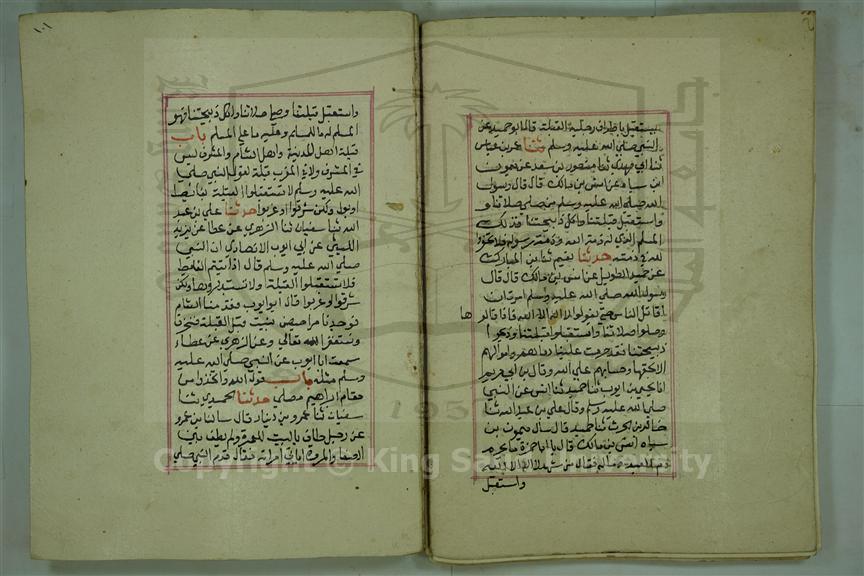 يستقبل باطراف رجليه القبلة قاله ابو حميد عن
النبي صلى الله عليه وسلم حدثنا عمرو بن عباس
ثنا ابن مهدي ثنا منصور بن سعد عن ميمون
ابن سياه عن انس بن مالك قال قال رسول
الله صلى الله عليه وسلم من صلى صلاتنا
واستقبل قبلتنا واكل ذبيحتنا فذلك
المسلم الذي له ذمة الله وذمة رسوله فلا تخفروا
الله في ذمته حدثنا نعيم ثنا ابن المبارك
عن حميد الطويل عن انس بن مالك قال قال
رسول الله صلى الله عليه وسلم امرت ان
اقاتل الناس حتى يقولوا لا اله الا الله فاذا قالوا
ها
وصلوا صلاتنا واستقبلوا قبلتنا وذبحوا
ذبيحتنا فقد حرمت علينا دماءهم واموالهم
الا بحقها وحسابهم على الله وقال ابن ابي مريم
انا يحيى بن ايوب ثنا حميد ثنا انس عن النبي
صلى الله عليه وسلم وقال علي بن عبد الله ثنا
خالد بن الحرث ثنا حميد قال سأل ميمون بن
سياه انس بن مالك قال يا ابا حمزة ما يحرم
دم العبد وماله فقال من شهد ان لا اله الا الله
واستقبل
١٠١
واستقبل قبلتنا وصلى صلاتنا واكل ذبيحتنا فهو
المسلم له ما للمسلم وعليه ما على المسلم باب
قبلة اهل المدينة واهل الشام والمشرق ليس
في المشرق ولا في المغرب قبلة لقول النبي صلى
الله عليه وسلم لا تستقبلوا القبلة بغائط
او بول ولكن شرقوا او غربوا حدثنا علي بن عبد
الله ثنا سفيان ثنا الزهري عن عطاء بن يزيد
الليثي عن ابي ايوب الانصاري ان النبي
صلى الله عليه وسلم قال اذا اتيتم الغائط
فلا تستقبلوا القبلة ولا تستدبروها ولكن
شرقوا او غربوا قال ابو ايوب فقدمنا الشام
فوجدنا مراحيض بنيت قبل القبلة فننحرف
ونستغفر الله تعالى وعن الزهري عن عطاء
سمعت ابا ايوب عن النبي صلى الله عليه
وسلم مثله باب قوله الله واتخذوا من
مقام ابراهيم مصلى حدثنا الحميدي ثنا
سفيان ثنا عمرو بن دينار قال سالنا بن عمر
عن رجل طاف بالبيت للعمرة ولم يطف بين
الصفا والمروة اياتي امراته فقال قدم النبي صلى
Copyright © King Saud University
1957